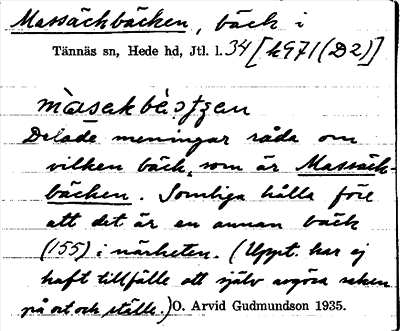 Massäckbäcken, bäck i
Tännäs sn, Hede hd, Jtl. l. 34 [k971(D2)]
màsakbɛ̀ștʃɛn
Delade meningar råda om
vilken bäck, som är Massäck-
bäcken. Somliga hålla före
att det är en annan bäck
(155) i närheten. (Uppt. har ej
haft tillfälle att själv avgöra saken
på ort och ställe.) O. Arvid Gudmundson 1935.